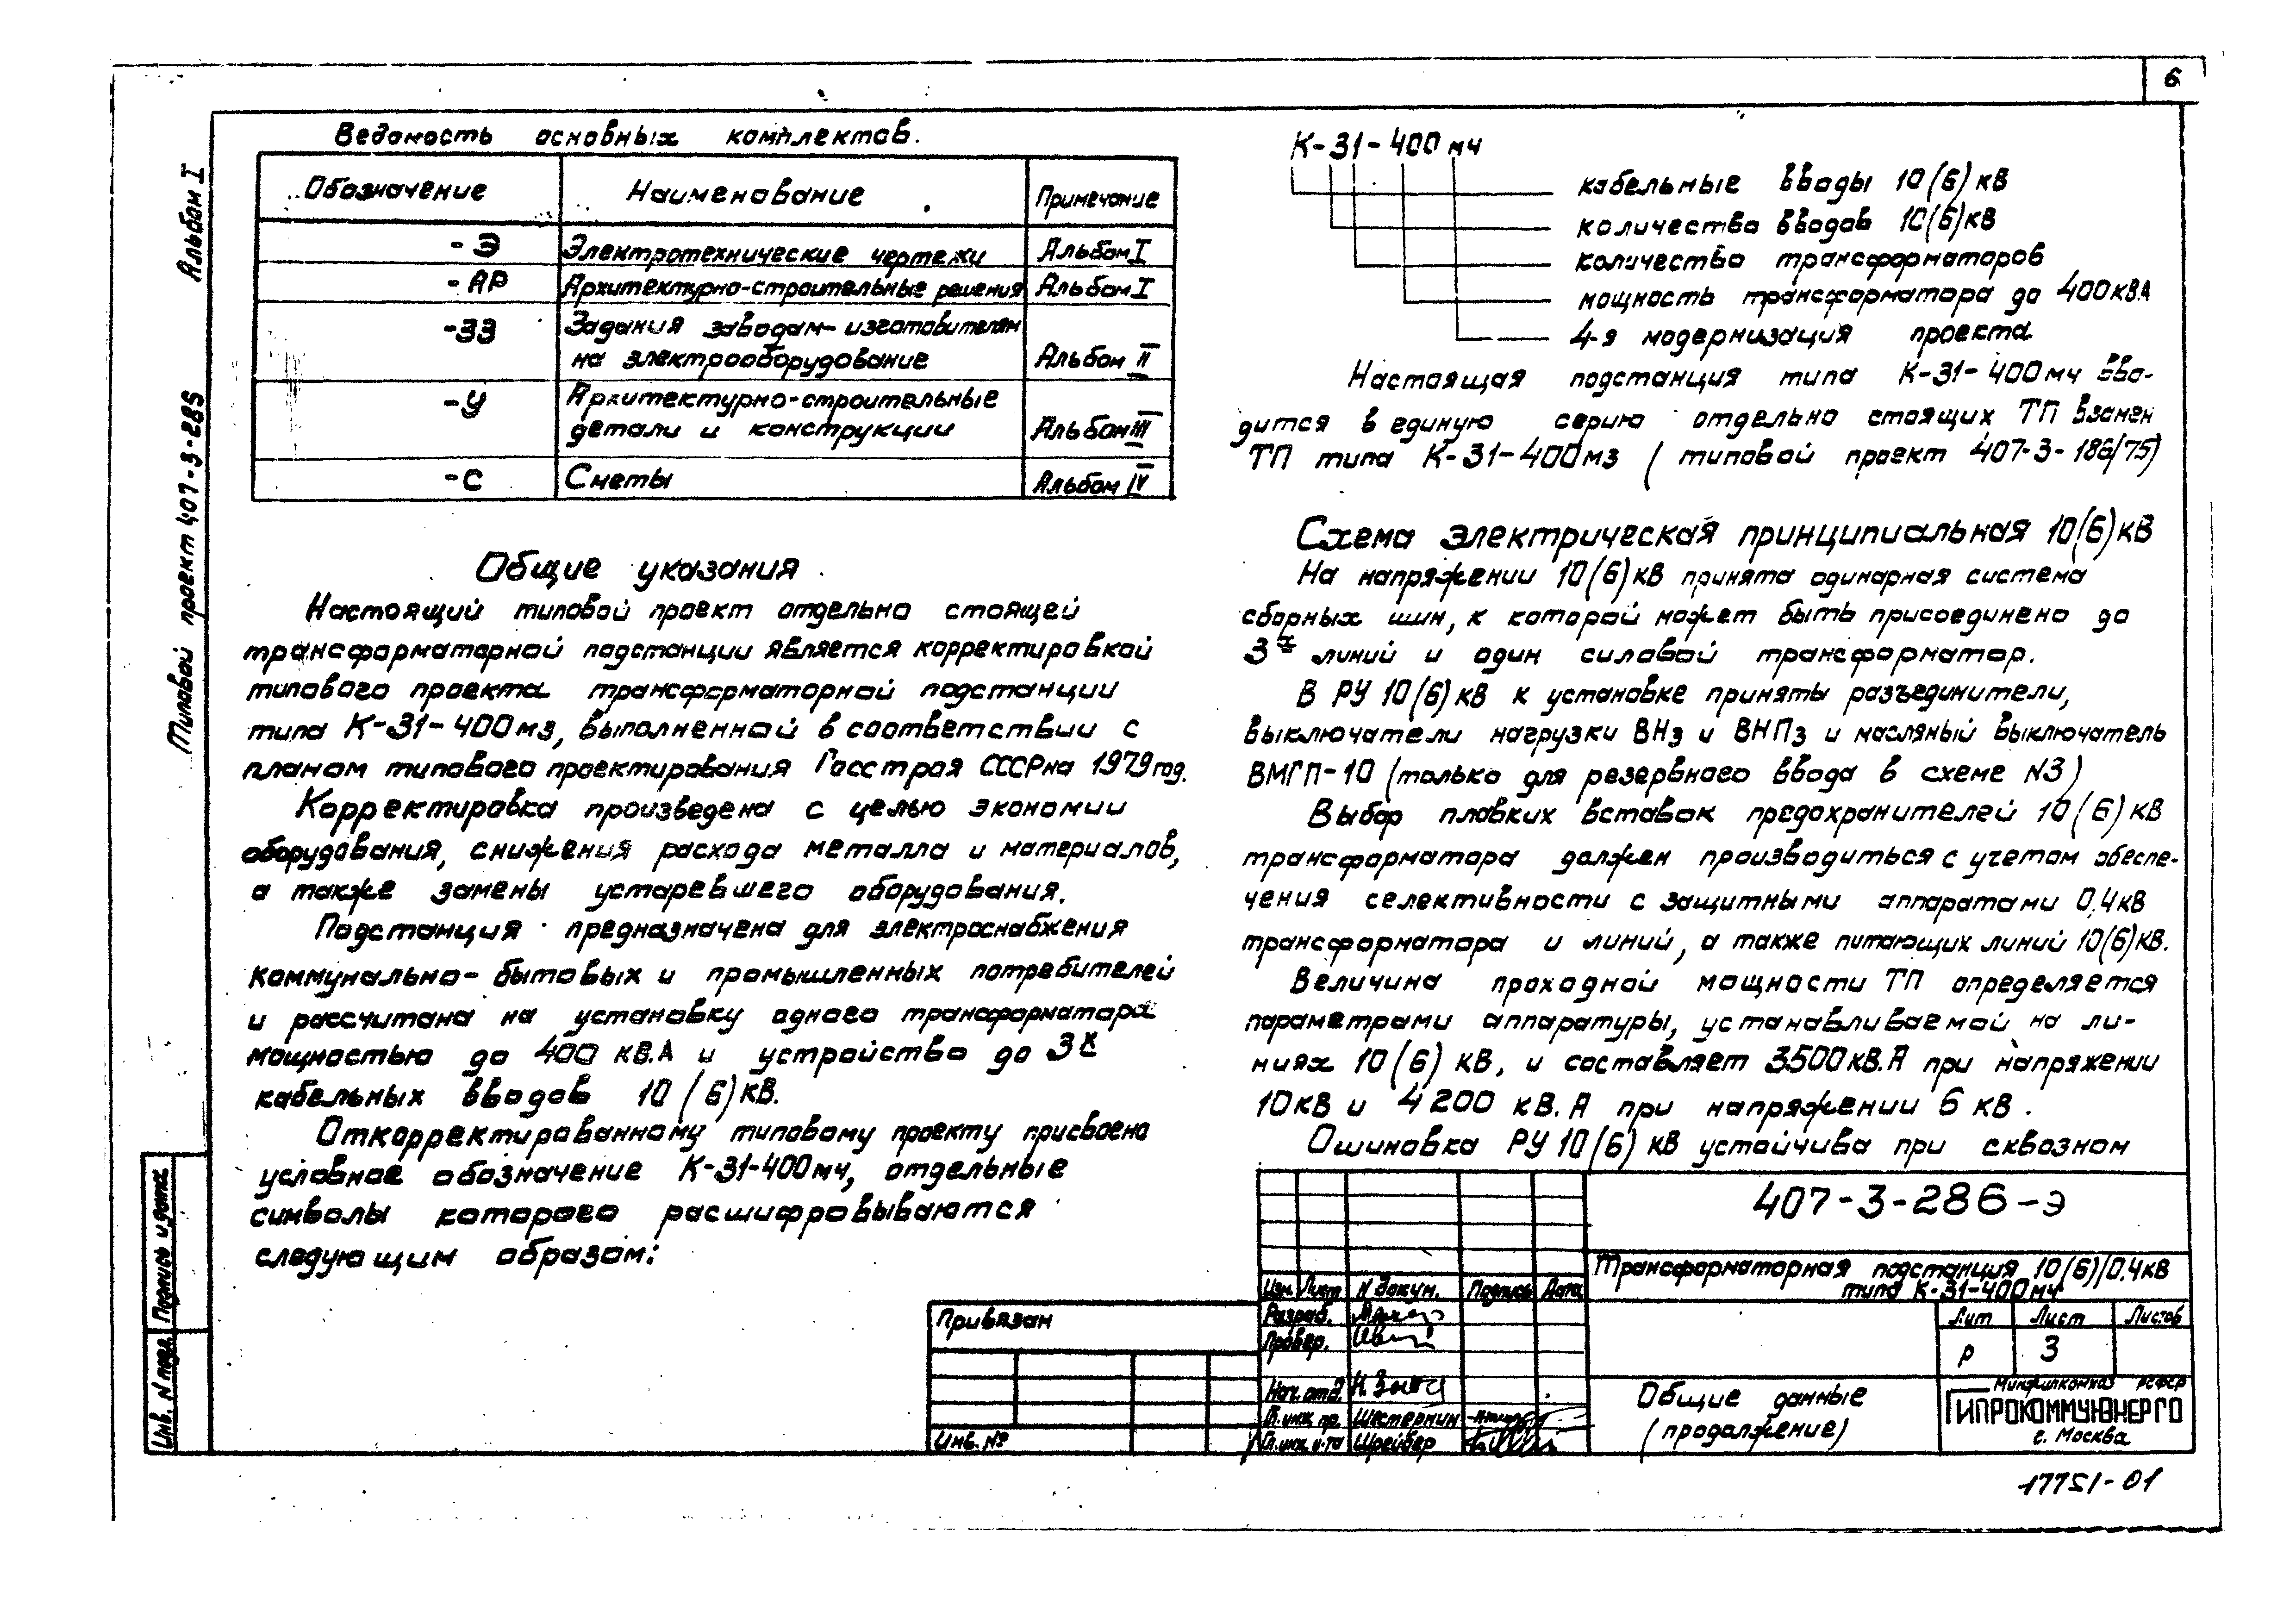 6
Альбом I
Типовой проект 407-3-286
Инв. N подл. Подпись и дата
Ведомость основных комплектов.
Обозначение Наименование Примечание
-Э Электротехнические чертежи Альбом I
-АР Архитектурно-строительные решения Альбом I
-ЗЗ Задания заводам-изготовителям
на электрооборудование Альбом II
-У Архитектурно-строительные
детали и конструкции Альбом III
-С Сметы Альбом IV
Общие указания
Настоящий типовой проект отдельно стоящей
трансформаторной подстанции является корректировкой
типового проекта трансформаторной подстанции
типа К-31-400мз, выполненной в соответствии с
планом типового проектирования Госстроя СССР на 1979 год.
Корректировка произведена с целью экономии
оборудования, снижения расхода металла и материалов,
а также замены устаревшего оборудования.
Подстанция предназначена для электроснабжения
коммунально-бытовых и промышленных потребителей
и рассчитана на установку одного трансформатора
мощностью до 400 кВ.А и устройство до 3х
кабельных вводов 10 (6) кВ.
Откорректированному типовому проекту присвоено
условное обозначение К-31-400мч, отдельные
символы которого расшифровываются
следующим образом:
К-31-400мч
кабельные вводы 10(6) кВ
количество вводов 10(6)кВ
количество трансформаторов
мощность трансформатора до 400кВ.А
4-я модернизация проекта
Настоящая подстанция типа К-31-400мч вво-
дится в единую серию отдельно стоящих ТП взамен
ТП типа К-31-400мз (типовой проект 407-3-186/75)
Схема электрическая принципиальная 10(6)кВ
На напряжении 10(6)кВ принята одинарная система
сборных шин, к которой может быть присоединено до
3х линий и один силовой трансформатор.
В РУ 10(6)кВ к установке приняты разъединители,
выключатели нагрузки ВНз и ВНПз и масляный выключатель
ВМГП-10 (только для резервного ввода в схеме N3)
Выбор плавких вставок предохранителей 10(6) кВ
трансформатора должен производиться с учетом обеспе-
чения селективности с защитными аппаратами 0,4кВ
трансформатора и линий, а также питающих линий 10(6)кВ.
Величина проходной мощности ТП определяется
параметрами аппаратуры, устанавливаемой на ли-
ниях 10(6) кВ, и составляет 3500кВ.А при напряжении
10кВ и 4200 кВ.А при напряжении 6 кВ.
Ошиновка РУ 10(6) кВ устойчива при сквозном
Привязан
Инв. №
Изм. Лист N докум. Подпись Дата
Разраб.
Провер.
Нач. отд.
Гл. инж. пр. Шестернин
Гл. инж. и-та Шрейбер
407-3-286-Э
Трансформаторная подстанция 10(6)/0,4кВ
типа К-31-400мч
Лит Лист Листов
Р 3
Общие данные
(продолжение)
Минжилкомхоз РСФСР
ГИПРОКОММУНЭНЕРГО
г. Москва
17751-01